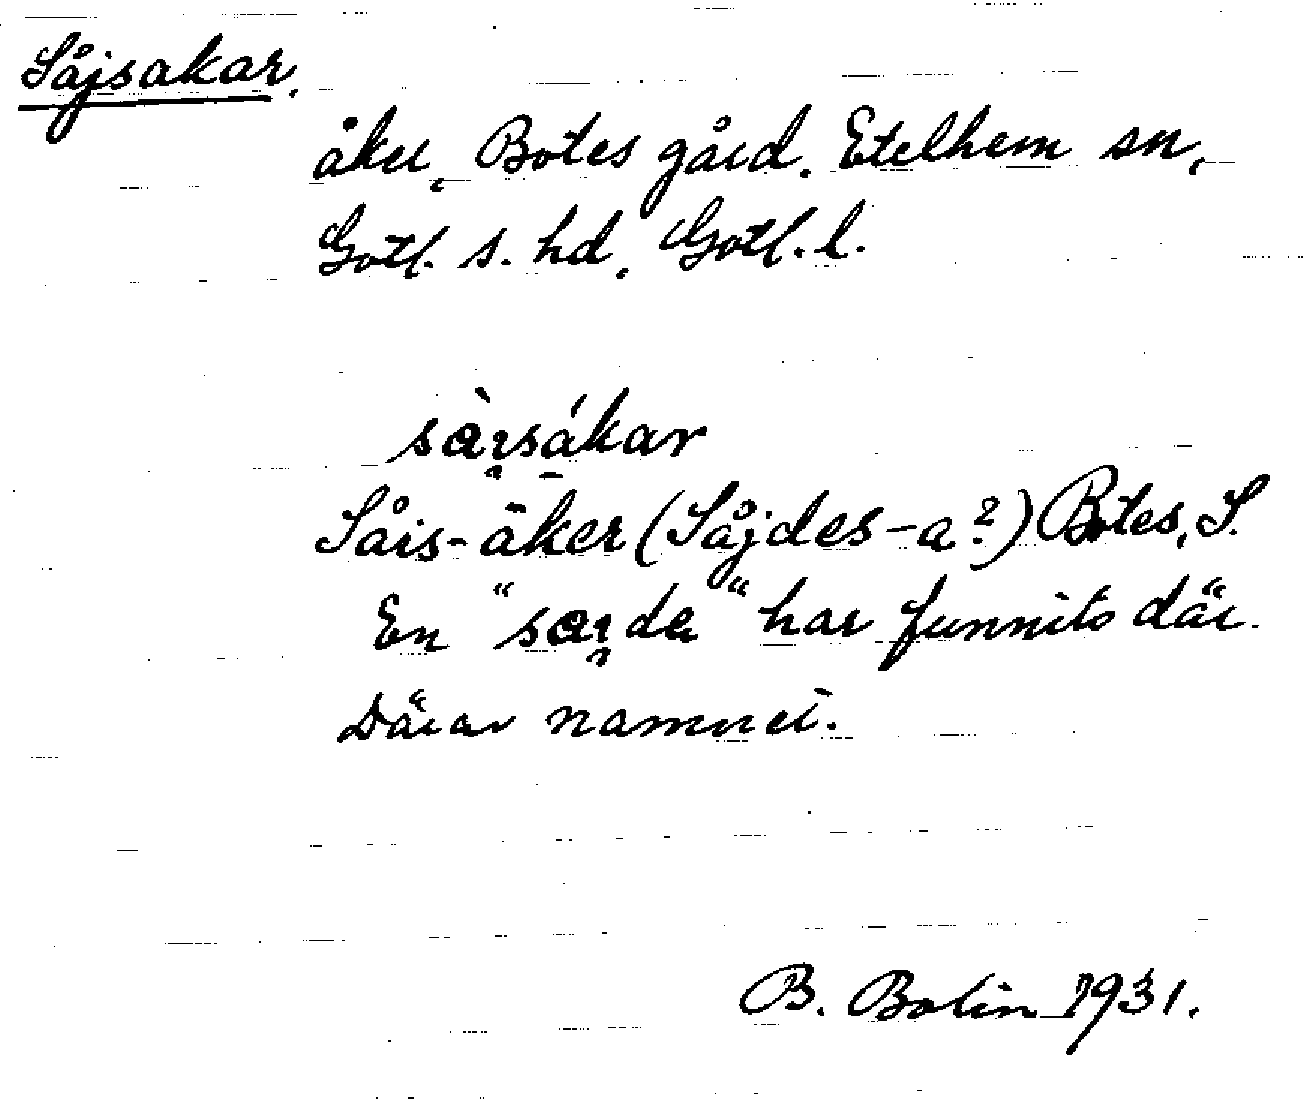 Såjsakar.
åker, Botes gård. Etelhem sn,
Gotl. s. hd, Gotl. l.
Såis-åker (Såjdes-a?) Botes, S.
En "sai̯da" har funnits där.
Därav namnet.
B. Bolin 1931.